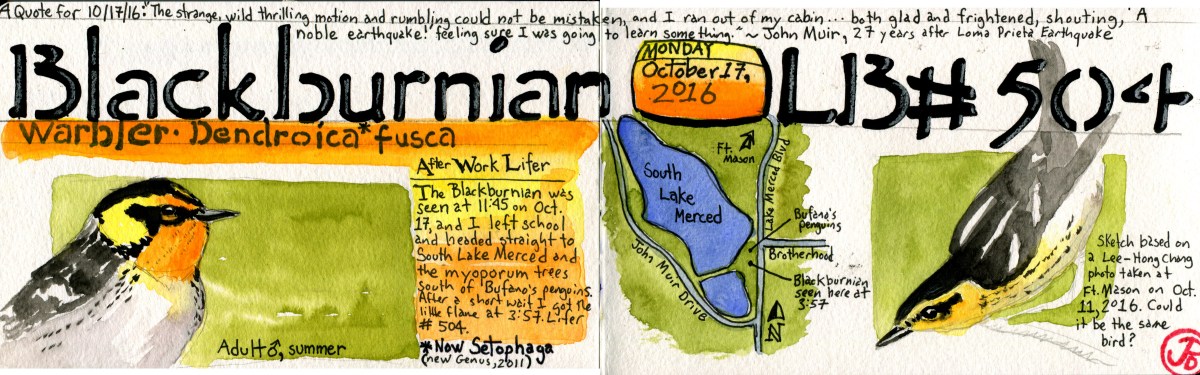 A Quote for 10/17/16: "The strange, wild thrilling motion and rumbling could not be mistaken, and I ran out of my cabin... both glad and frightened, shouting, 'A
noble earthquake!' feeling sure I was going to learn something." ~ John Muir, 27 years after Loma Prieta Earthquake
Blackburnian
Warbler · Dendroica* fusca
MONDAY
October 17,
2016
LB# 504
After Work Lifer
The Blackburnian was
seen at 11:45 on Oct.
17, and I left school
and headed straight to
South Lake Merced and
the myoporum trees
south of Bufano's penguins.
After a short wait I got the
little flame at 3:57. Lifer
# 504.
*Now Setophaga
(new Genus, 2011)
Adult ♂, summer
Ft.
Mason
South
Lake
Merced
Lake Merced Blvd
John Muir Drive
Bufano's
penguins
Brotherhood
Blackburnian
seen here at
3:57
N
Sketch based on
a Lee-Hong Chang
photo taken at
Ft. Mason on Oct.
11, 2016. Could
it be the same
bird?